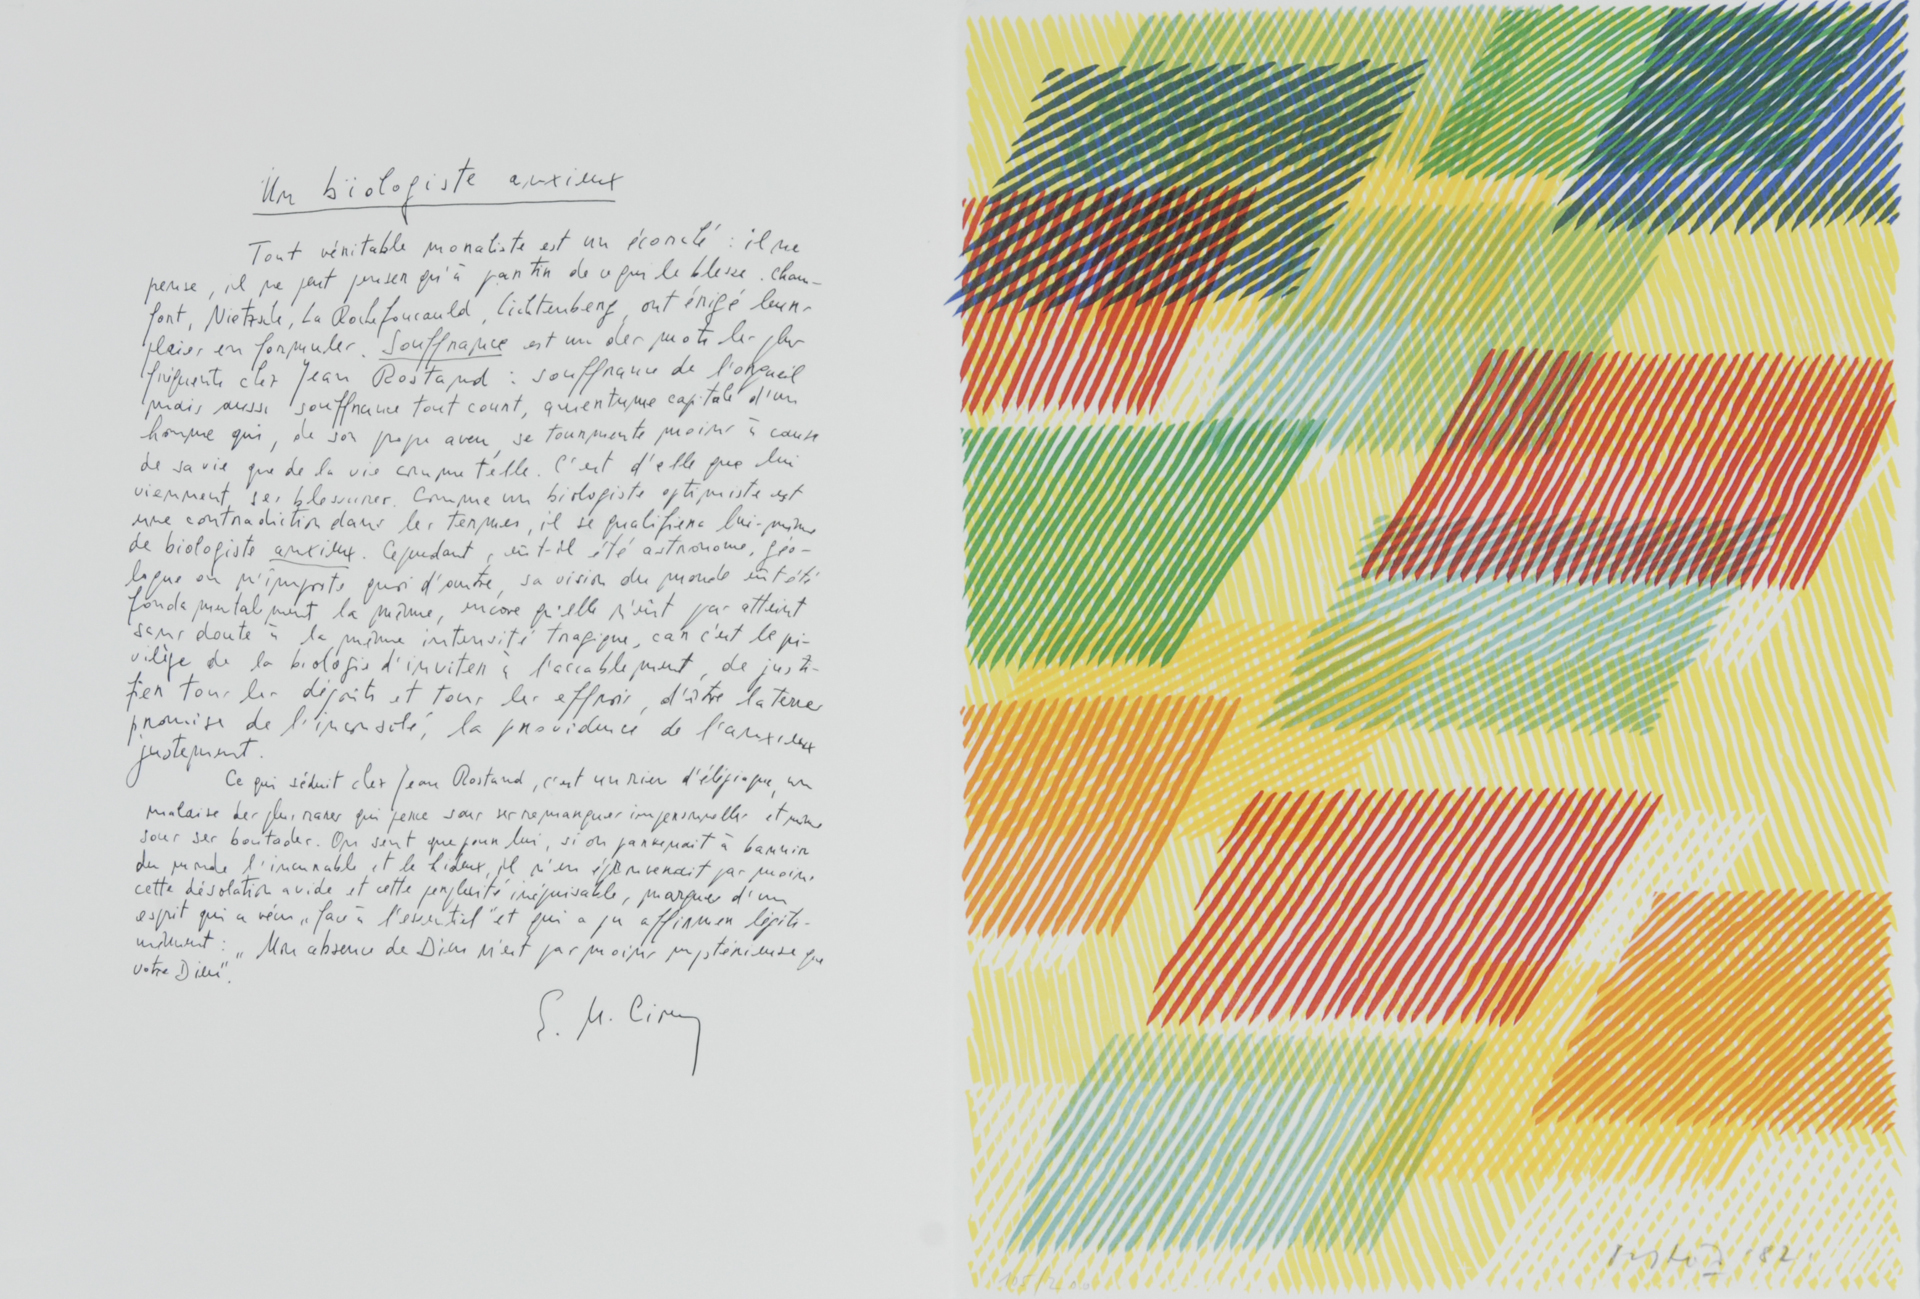 Un biologiste anxieux
Tout véritable moraliste est un écorché : il ne
pense, il ne peut penser qu'à partir de ce qui le blesse. Cham-
fort, Nietzsche, La Rochefoucauld, Lichtenberg, ont érigé leurs
plaies en formules. Souffrance est un des mots les plus
fréquents chez Jean Rostand : souffrance de l'orgueil
mais aussi souffrance tout court, amertume capitale d'un
homme qui, de son propre aveu, se tourmente moins à cause
de sa vie que de la vie comme telle. C'est d'elle que lui
viennent ses blessures. Comme un biologiste optimiste est
une contradiction dans les termes, il se qualifiera lui-même
de biologiste anxieux. Cependant, eût-il été astronome, géo-
logue ou n'importe quoi d'autre, sa vision du monde eût été
fondamentalement la même, encore qu'elle n'eût pas atteint
sans doute à la même intensité tragique, car c'est le pri-
vilège de la biologie d'inviter à l'accablement, de justi-
fier tous les dégoûts et tous les effrois, d'être la terre
promise de l'inconsolé, la providence de l'anxieux
justement.
Ce qui séduit chez Jean Rostand, c'est un rien d'élégiaque, un
malaise des plus rares qui perce sous ses remarques impersonnelles et même
sous ses boutades. On sent que pour lui, si on parvenait à bannir
du monde l'incurable et le hideux, il n'en éprouverait pas moins
cette désolation avide et cette perplexité inépuisable, marques d'un
esprit qui a vécu "face à l'essentiel" et qui a pu affirmer légiti-
mement : "Mon absence de Dieu n'est pas moins mystérieuse que
votre Dieu".
E. M. Cioran
105/200
'82